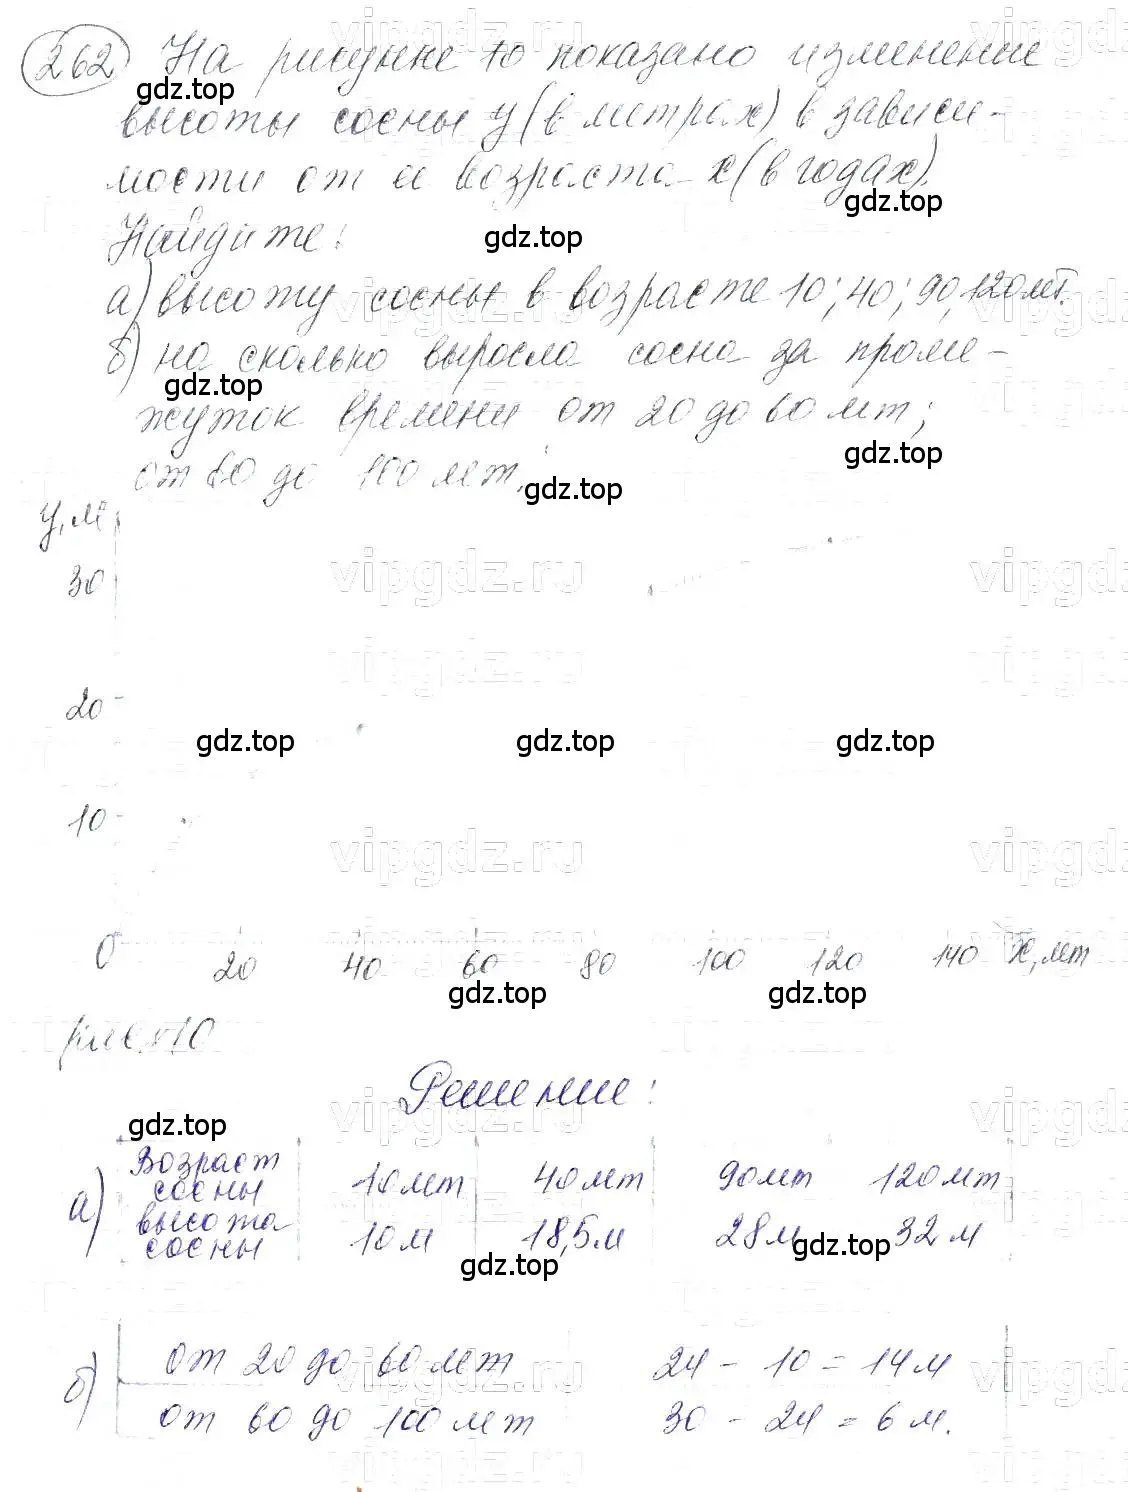 262 На рисунке 10 показано изменение
высоты сосны y (в метрах) в зависи-
мости от её возраста x (в годах).
Найдите:
а) высоту сосны в возрасте 10; 40; 90, 120 лет.
б) на сколько выросла сосна за проме-
жуток времени от 20 до 60 лет;
от 60 до 100 лет.
y, м
30
20
10
0 20 40 60 80 100 120 140 x, лет
рис. 10
Решение:
а) Возраст сосны 10 лет 40 лет 90 лет 120 лет
высота сосны 10 м 18,5 м 28 м 32 м
б) от 20 до 60 лет 24 - 10 = 14 м
от 60 до 100 лет 30 - 24 = 6 м.
gdz.top
vipgdz.ru